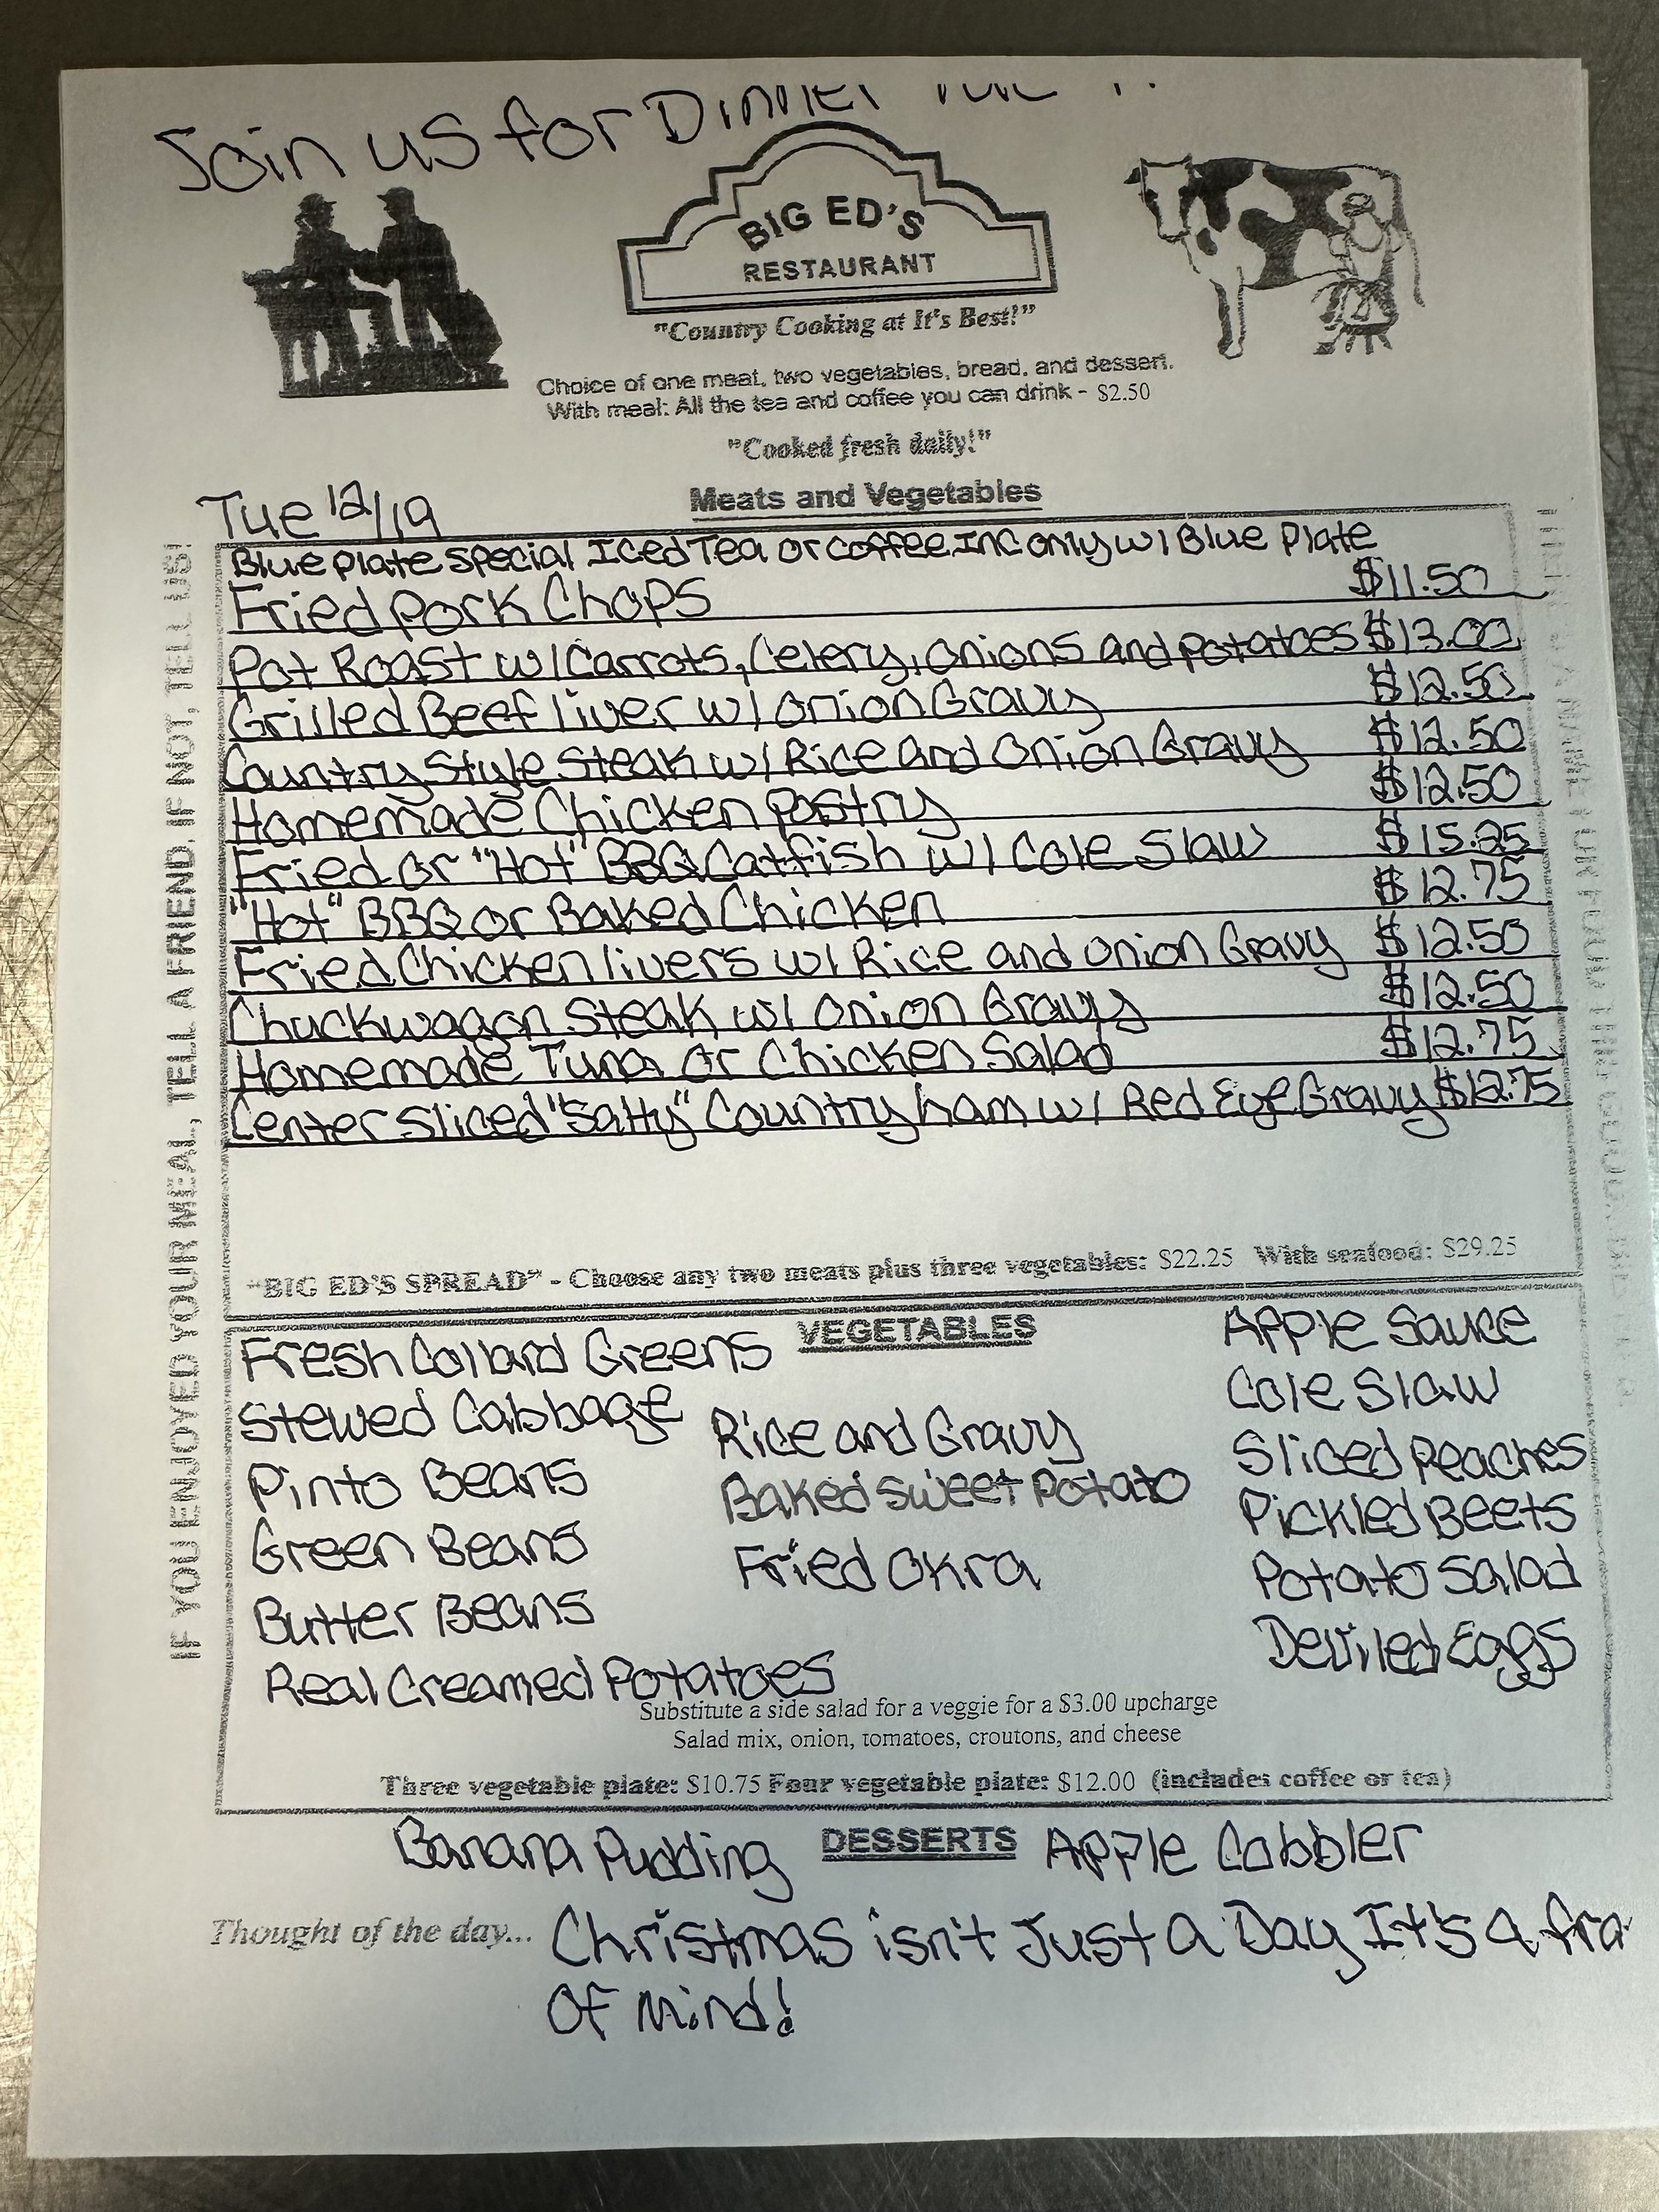 Join us for Dinner
BIG ED'S
RESTAURANT
"Country Cooking at It's Best!"
Choice of one meat, two vegetables, bread, and dessert.
With meal: All the tea and coffee you can drink - $2.50
"Cooked fresh daily!"
Tue 12/19
Meats and Vegetables
Blue Plate Special Iced Tea or Coffee Inc only w/ Blue Plate
Fried Pork Chops $11.50
Pot Roast w/ Carrots, Celery, Onions and Potatoes $13.00
Grilled Beef liver w/ Onion Gravy $12.50
Country Style Steak w/ Rice and Onion Gravy $12.50
Homemade Chicken Pastry $12.50
Fried or "Hot" BBQ Catfish w/ Cole Slaw $15.25
"Hot" BBQ or Baked Chicken $12.75
Fried Chicken livers w/ Rice and Onion Gravy $12.50
Chuckwagon Steak w/ Onion Gravy $12.50
Homemade Tuna or Chicken Salad $12.75
Center Sliced "Salty" Country ham w/ Red Eye Gravy $12.75
"BIG ED'S SPREAD" - Choose any two meats plus three vegetables: $22.25 With seafood: $29.25
IF YOU ENJOYED YOUR MEAL, TELL A FRIEND. IF NOT, TELL US!
VEGETABLES
Fresh Collard Greens
Stewed Cabbage
Pinto Beans
Green Beans
Butter Beans
Real Creamed Potatoes
Rice and Gravy
Baked Sweet Potato
Fried Okra
Apple Sauce
Cole Slaw
Sliced Peaches
Pickled Beets
Potato Salad
Deviled Eggs
Substitute a side salad for a veggie for a $3.00 upcharge
Salad mix, onion, tomatoes, croutons, and cheese
Three vegetable plate: $10.75 Four vegetable plate: $12.00 (includes coffee or tea)
Banana Pudding DESSERTS Apple Cobbler
Thought of the day... Christmas isn't Just a Day It's a fra
Of Mind!